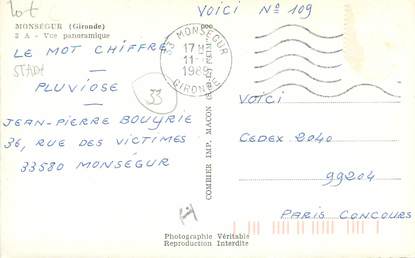 lot
VOICI Nº 109
MONSEGUR (Gironde)
2 A - Vue panoramique
LE MOT CHIFFRE
STADE
PLUVIOSE
33
JEAN-PIERRE BOUYRIE
36, RUE DES VICTIMES
33580 MONSÉGUR
33 MONSEGUR
17 H
11-
198
GIRONDE
COMBIER IMP. MACON
VOICI
CEDEX 2040
99204
PARIS CONCOURS
Photographie Véritable
Reproduction Interdite